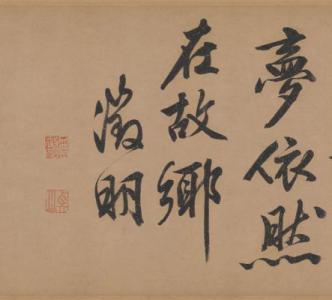 夢依然
在故鄉
徵明